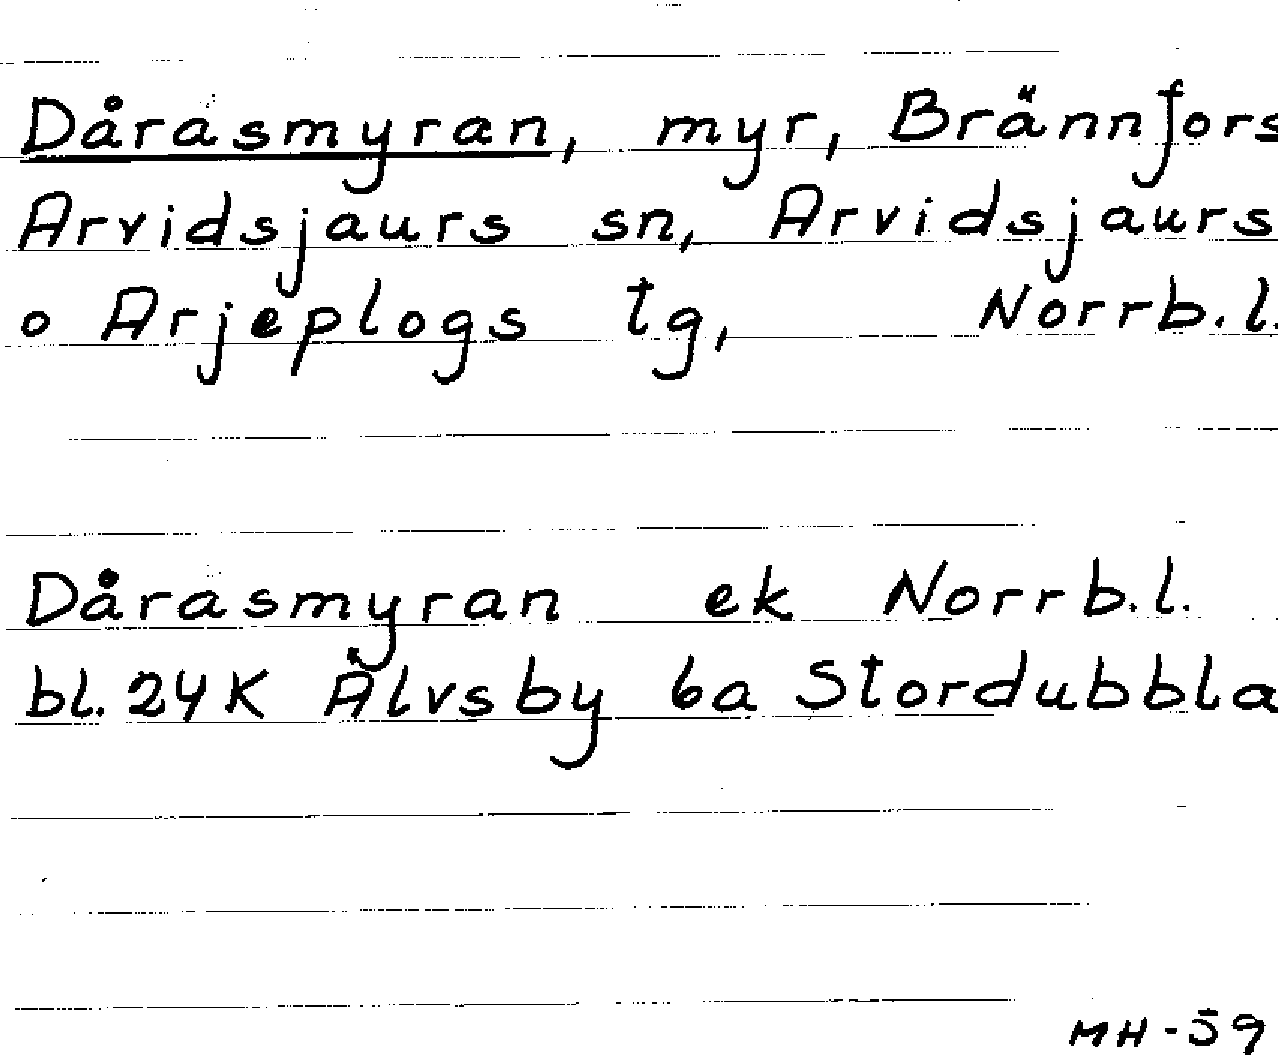 Dårasmyran, myr, Brännfors
Arvidsjaurs sn, Arvidsjaurs
o Arjeplogs tg, Norrb.l.
Dårasmyran ek Norrb.l.
bl. 24K Älvsby 6a Stordubbla
MH-59